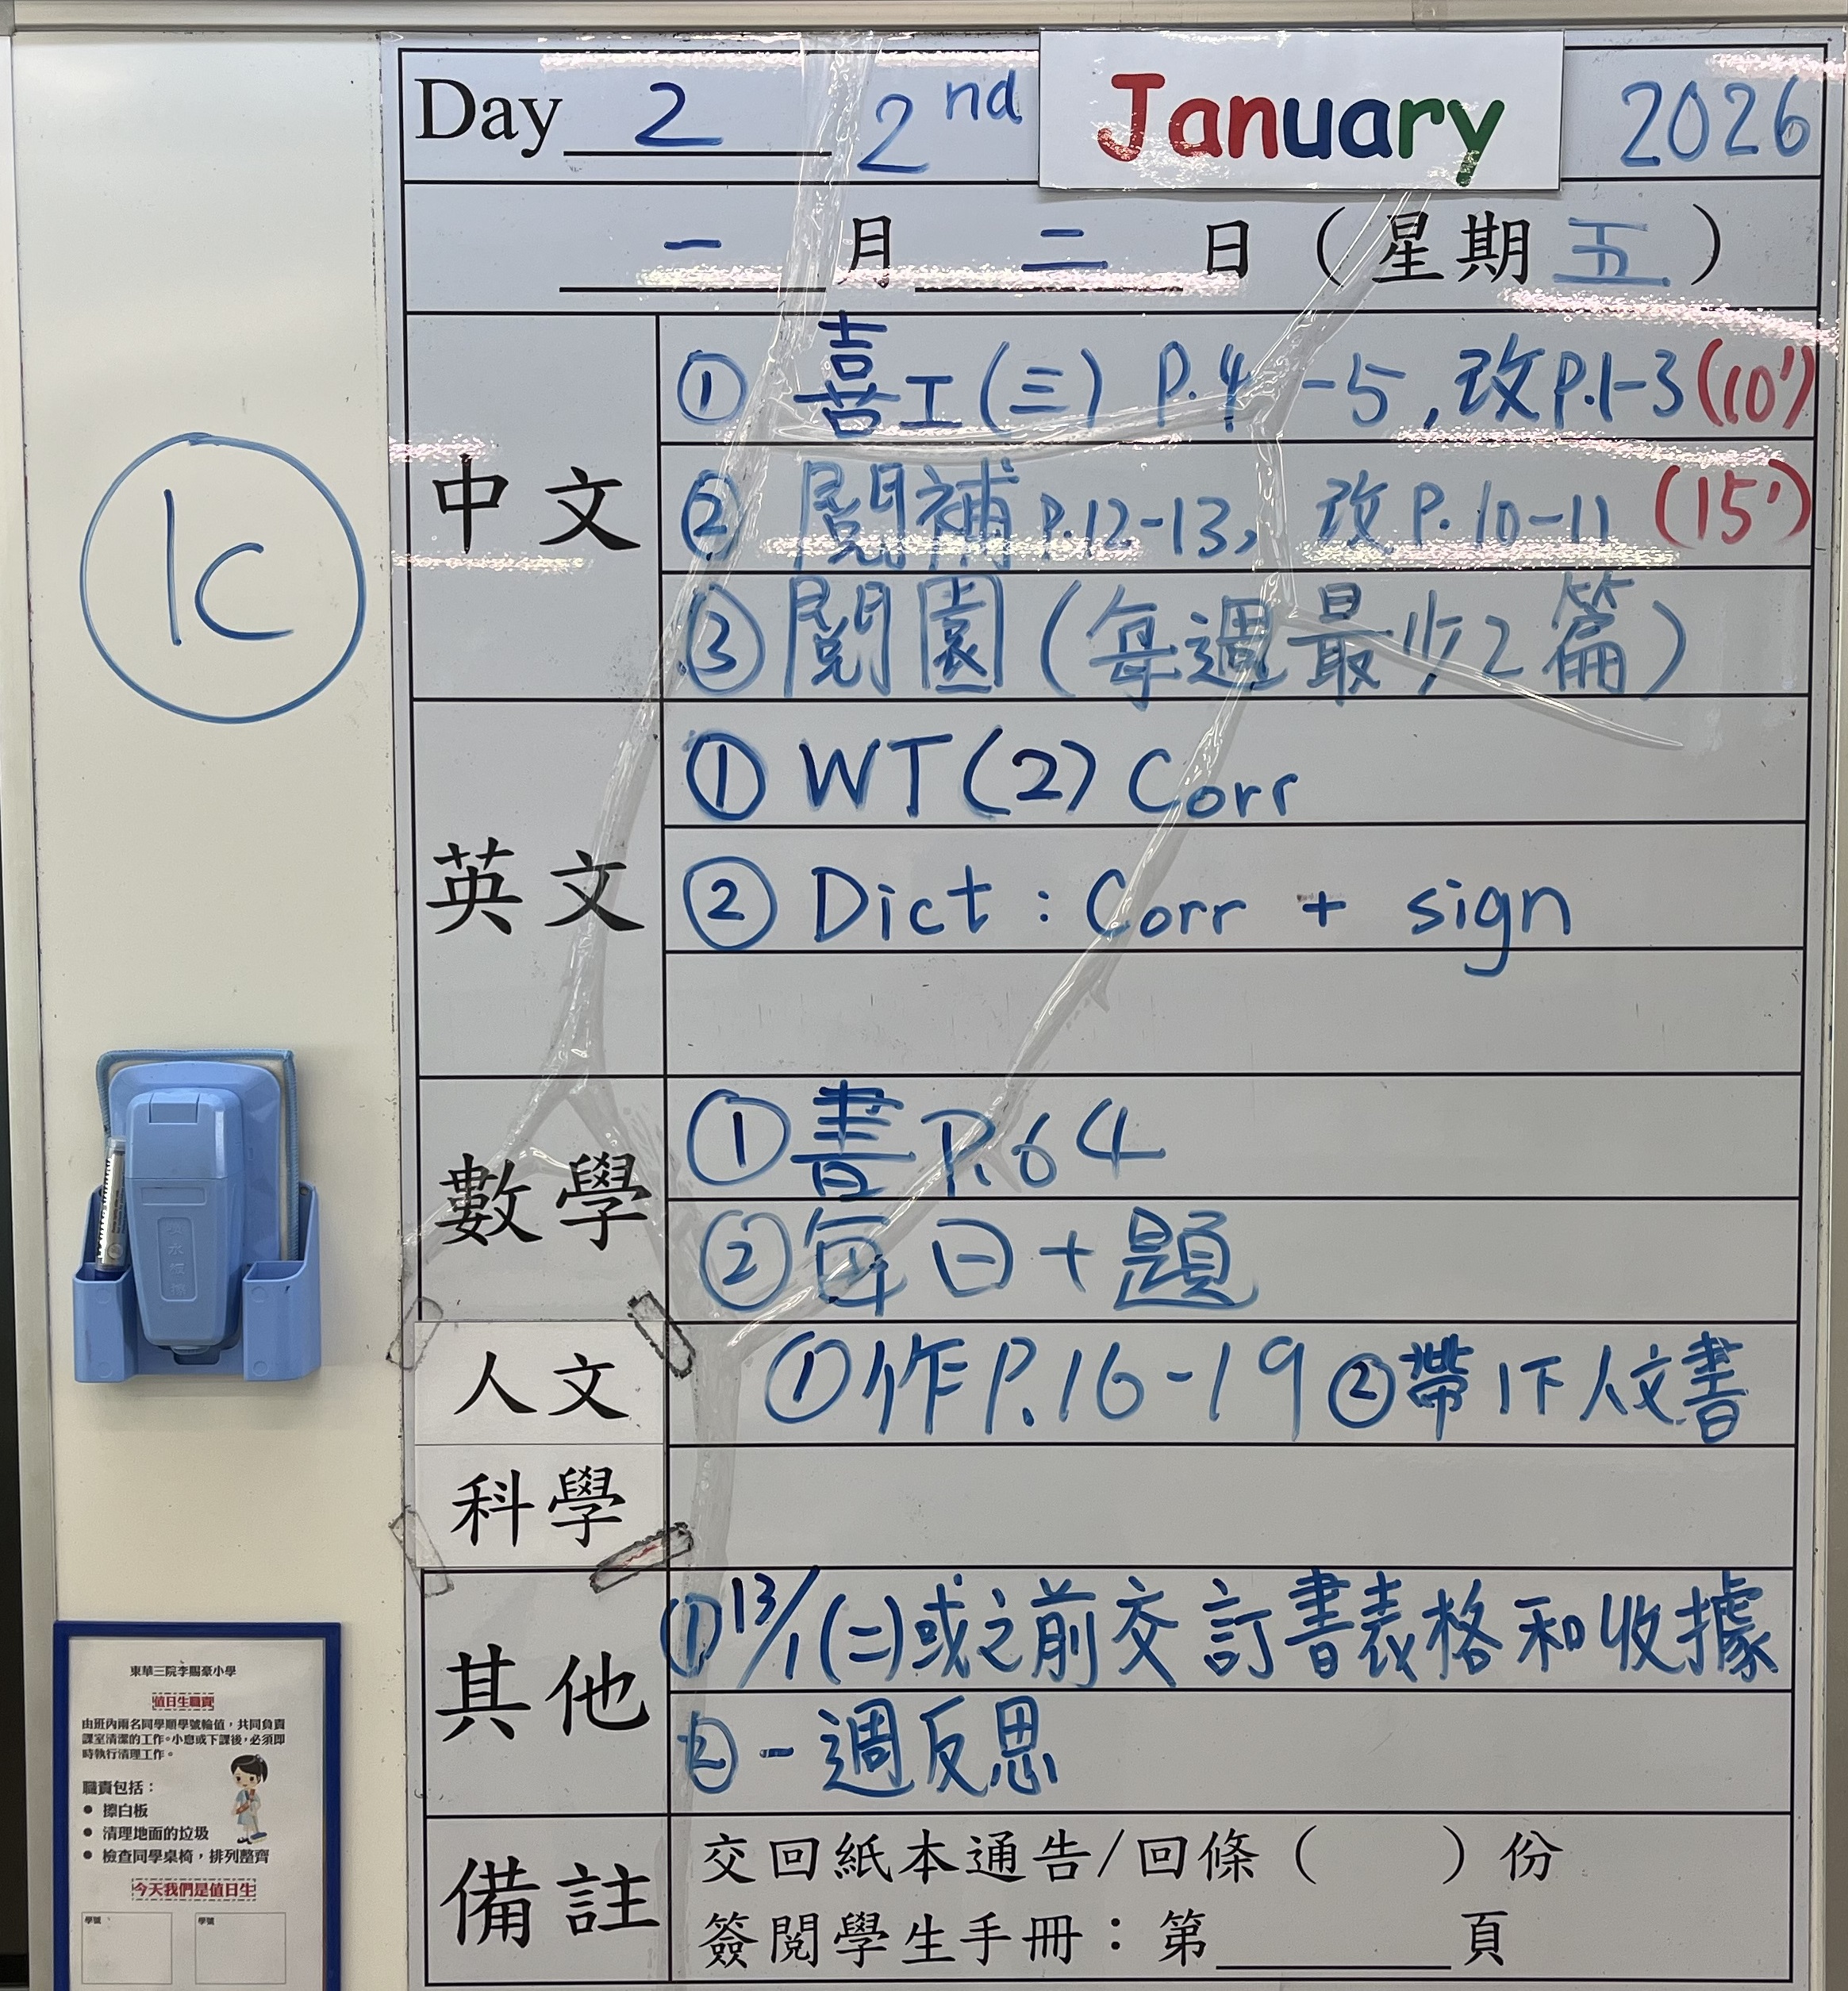 Day 2 2nd January 2026
一月二日（星期五）
1C
中文
① 喜工(三) P.4-5, 改P.1-3 (10')
② 閱補 P.12-13, 改P.10-11 (15')
③ 閱園(每週最少2篇)
英文
① WT(2) Corr
② Dict : Corr + sign
數學
① 書P.64
② 每日十題
人文
① 作P.16-19 ② 帶1下人文書
科學
其他
① 13/1(二)或之前交訂書表格和收據
② 一週反思
備註
交回紙本通告/回條（ ）份
簽閱學生手冊：第______頁
東華三院李賜豪小學
值日生職責
由班內兩名同學順學號輪值，共同負責
課室清潔的工作。小息或下課後，必須即
時執行清理工作。
職責包括：
● 擦白板
● 清理地面的垃圾
● 檢查同學桌椅，排列整齊
今天我們是值日生
學號
學號